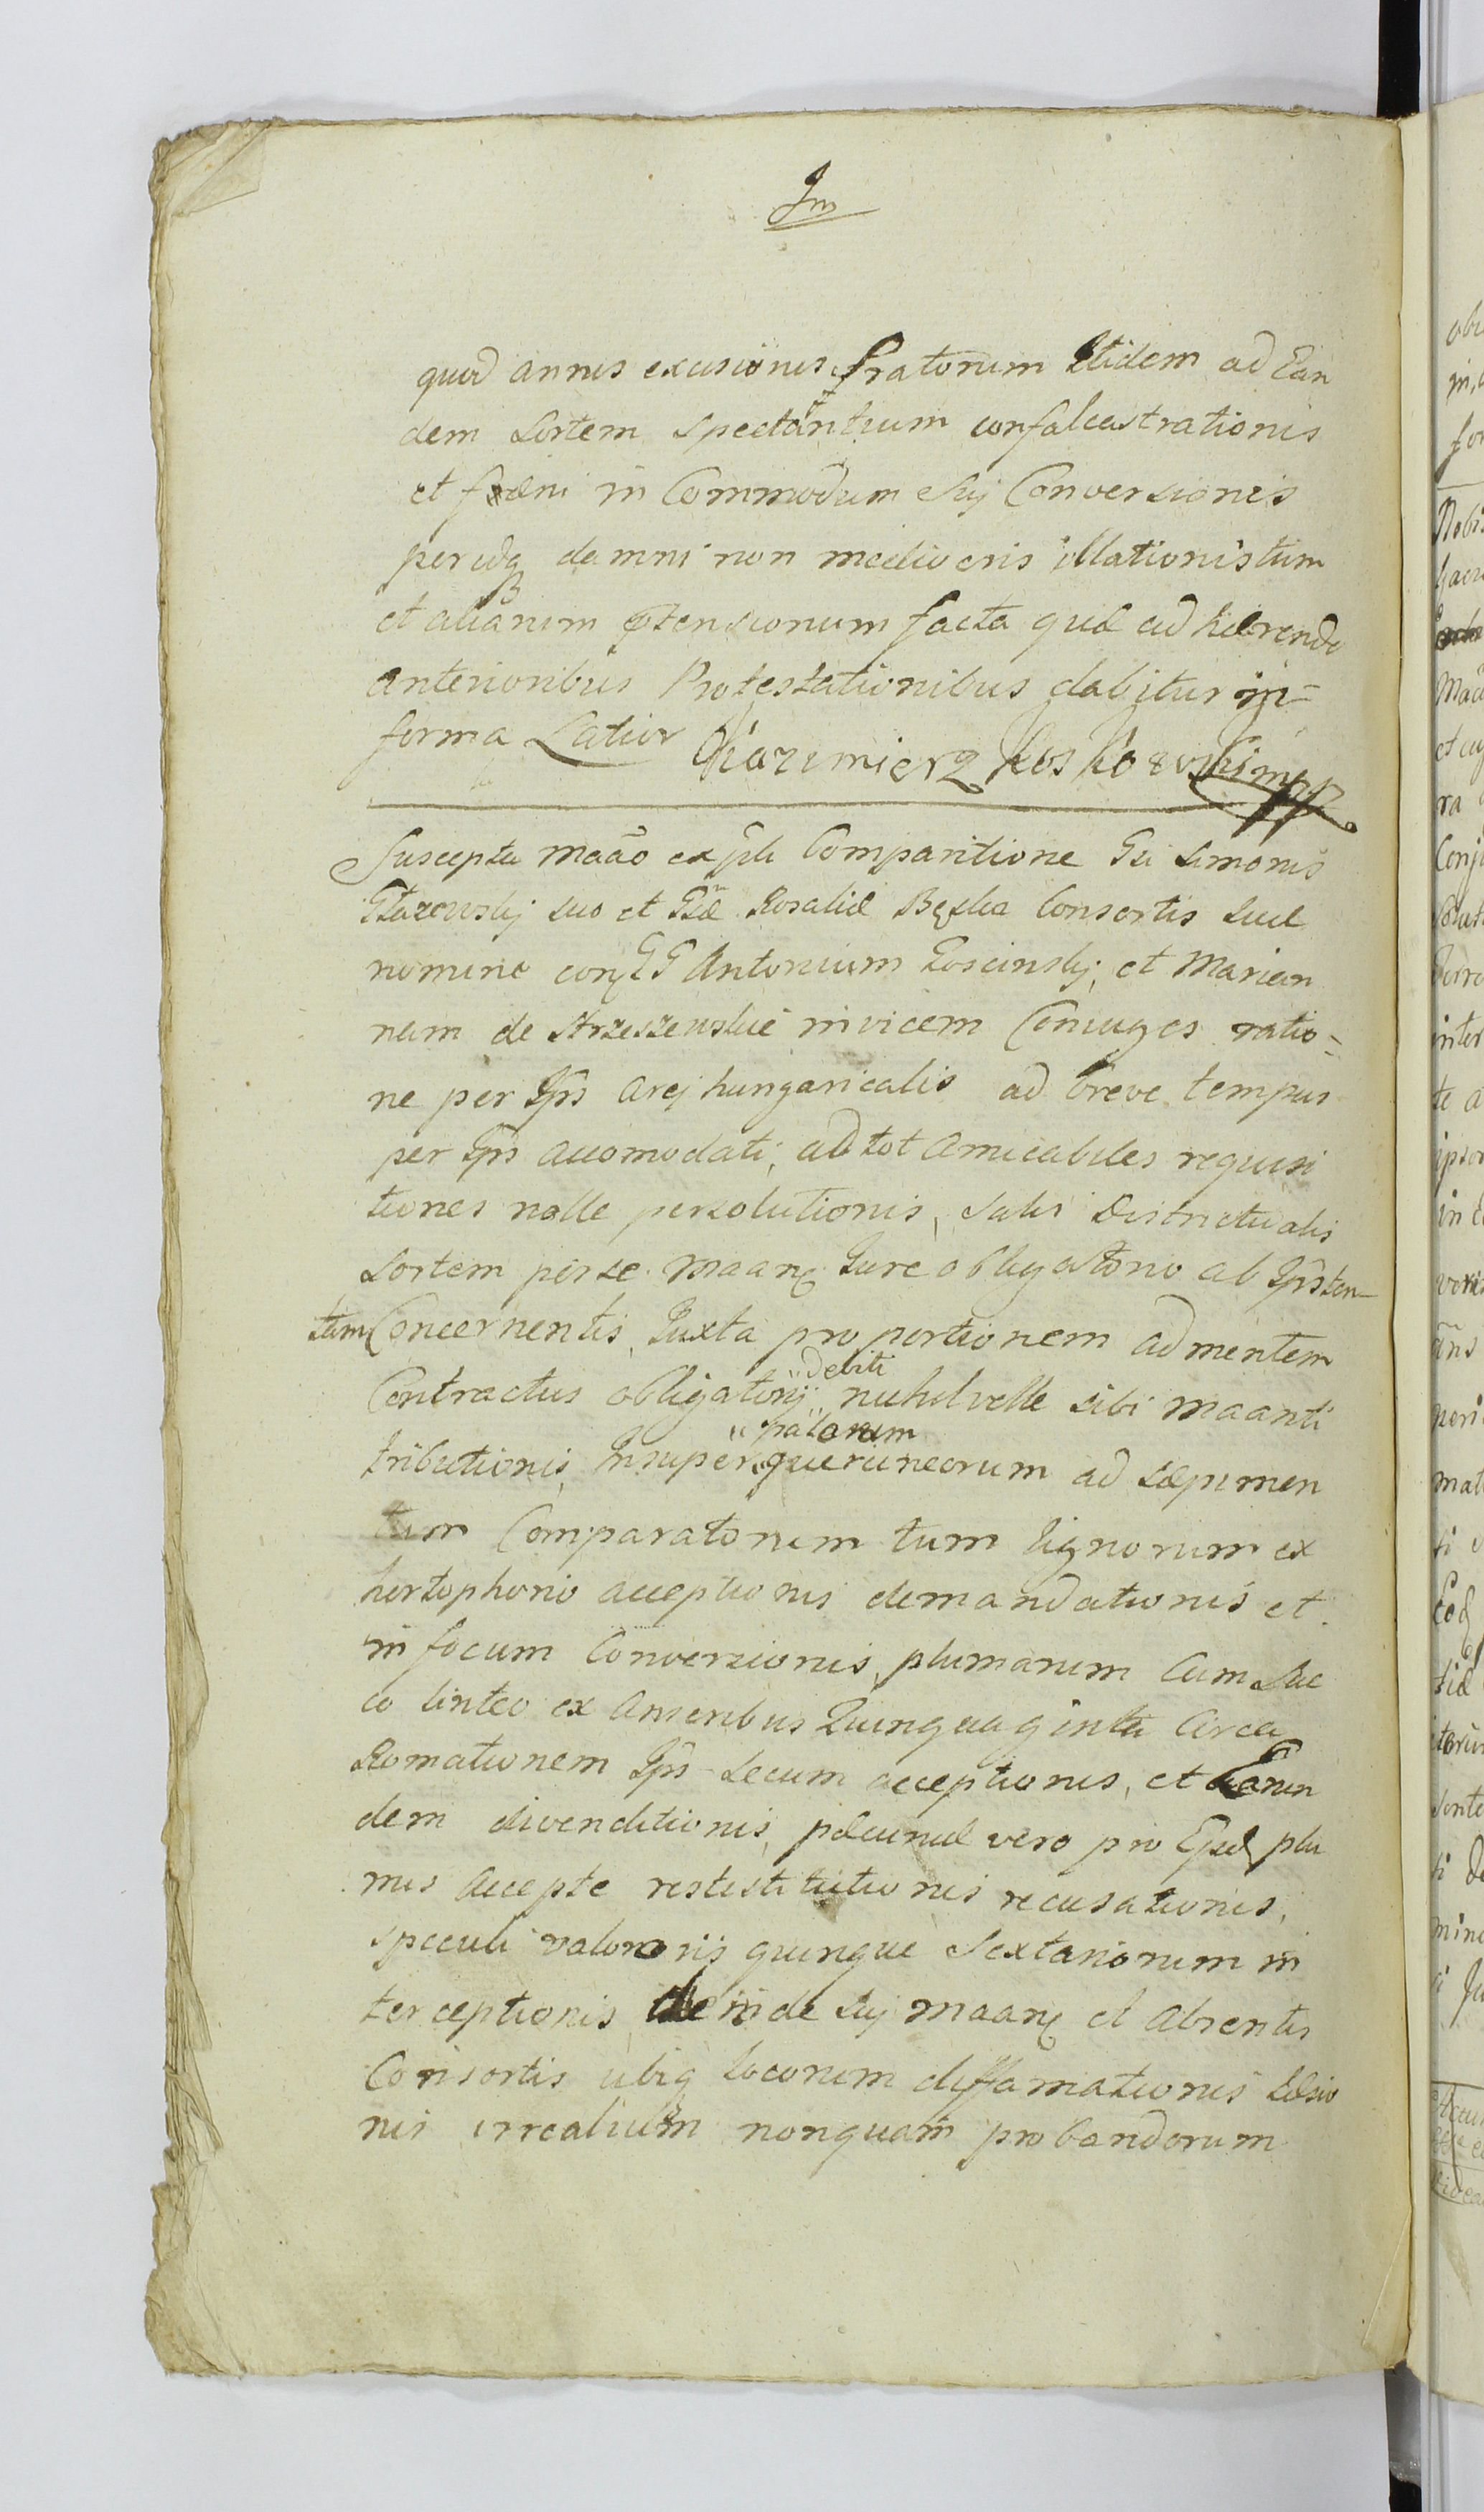 Im
quod annis excisionis Pratorum Itidem ad Ean
dem Sortem Spectantium confalcastrationis
et fæni in Commodum Sui Conversionis
per idq damni non mediocris illationis tum
et aliarum ptensionum facta quæ adhærendo
anterioribus Protestationibus dabitur in=
forma Latior Kazimierz Koskowski mpp
Suscepta maão ex pti Comparitione Gsi Simonis
Głazewskj suo et Gsæ Rosaliæ Bęska Consortis suæ
nomine con GG Antonium Roscinskj, et Marian
nam de Strzeszewskie invicem Coniuges ratio=
ne per Ips Arej hungaricalis ad breve tempus
per Ips accomodati, ad tot amicabiles requisi
tiones nolle persolutionis, Salis Districtualis
Sortem per se maanę Iure obligatorio ab Ips ten=
tam Concernentis, Iuxta proportionem ad mentem
Contractus obligatorij debiti nihil velle sibi maanti
tributionis, Insuper palorum quercineorum ad sæpimen
tum Comparatorum tum lignorum ex
hortophorio acceptionis demandationis et
in focum Conversionis, plumarum Cum Sac
co linteo ex Anseribus Quinquaginta Circa
Romationem Ips secum acceptionis, et Earun
dem divenditionis, pæcuniæ vero pro Ipsis plu
mis Accepte restestitutionis recusationis,
speculi valororis quinque Sextariorum in
terceptionis, deinde Sui maanę et absentis
Consortis ubiq locorum diffamationis læsio
nis irrealium nonquam probandorum